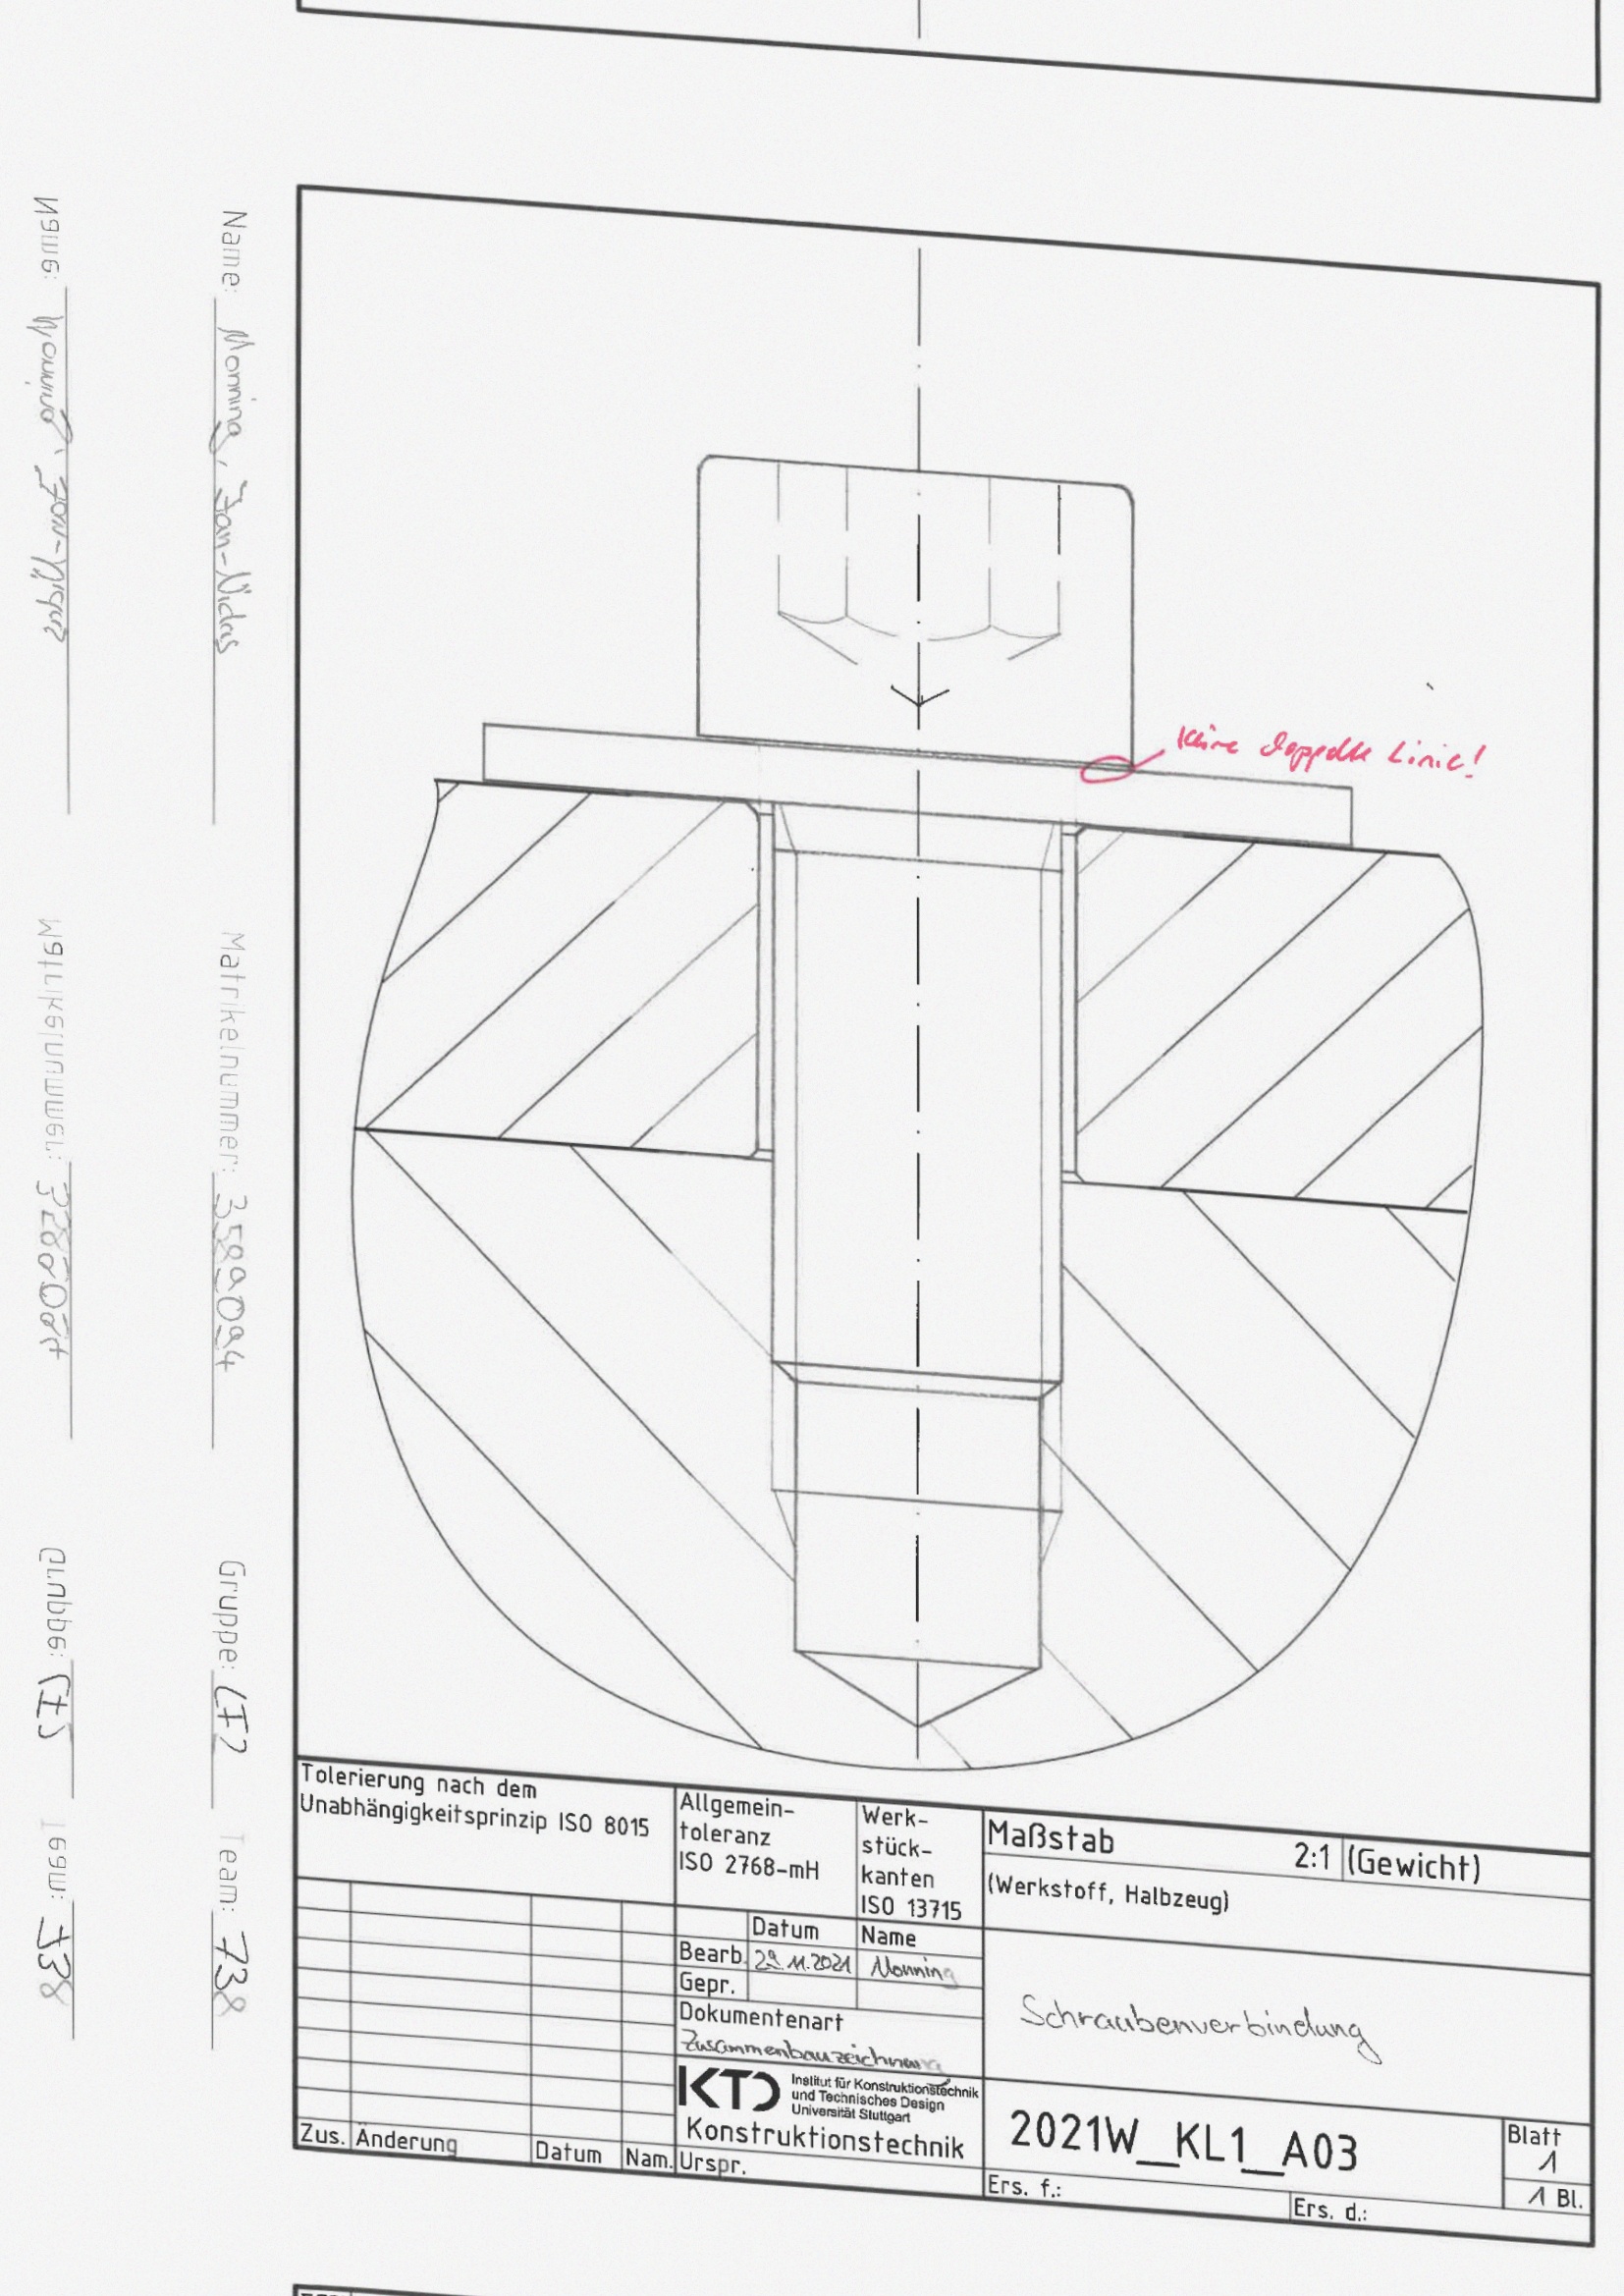 Name: Monning, Jan-Niclas Matrikelnummer: 3589094 Gruppe: CF2 Team: 738
keine doppelte Linie!
Tolerierung nach dem
Unabhängigkeitsprinzip ISO 8015
Allgemein-
toleranz
ISO 2768-mH
Werk-
stück-
kanten
ISO 13715
Maßstab 2:1 (Gewicht)
(Werkstoff, Halbzeug)
Datum Name
Bearb. 29.11.2021 Monning
Gepr.
Dokumentenart
Zusammenbauzeichnung
Schraubenverbindung
KTD Institut für Konstruktionstechnik
und Technisches Design
Universität Stuttgart
Konstruktionstechnik
2021W_KL1_A03
Blatt
1
1 Bl.
Zus. Änderung Datum Nam. Urspr.
Ers. f.: Ers. d.: